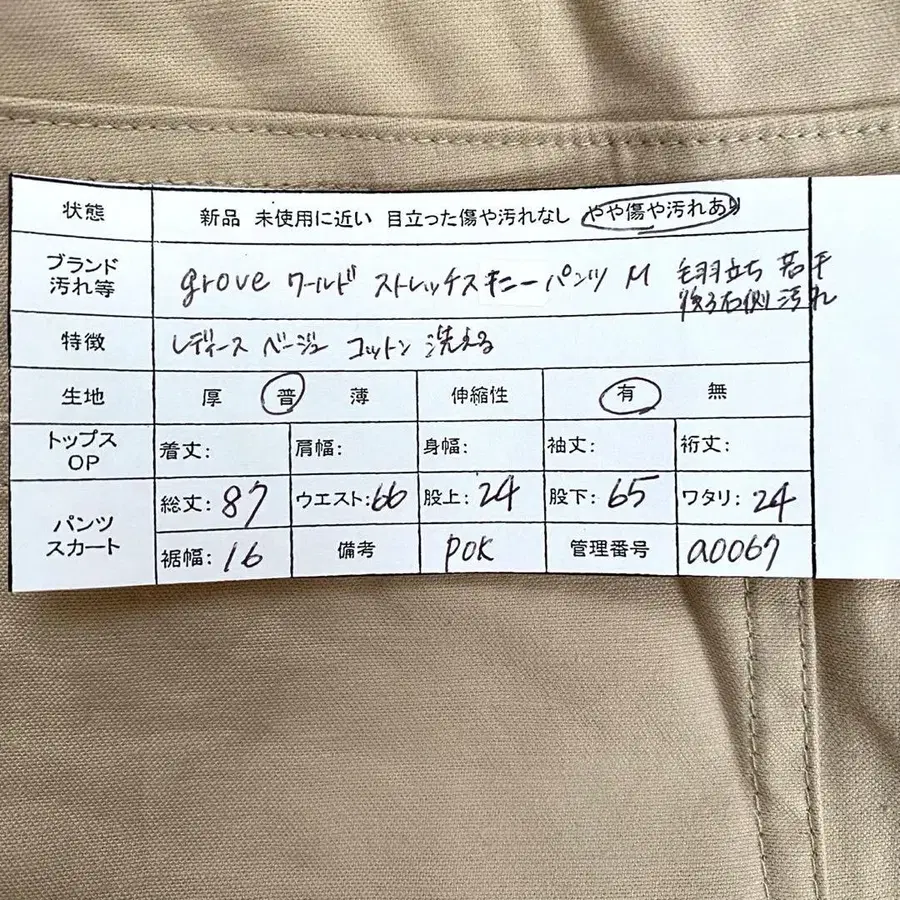 状態 新品 未使用に近い 目立った傷や汚れなし やや傷や汚れあり
ブランド 汚れ等 grove ワールド ストレッチスキニーパンツ M 毛羽立ち 若干
後ろ右側 汚れ
特徴 レディース ベージュ コットン 洗える
生地 厚 普 薄 伸縮性 有 無
トップス OP 着丈: 肩幅: 身幅: 袖丈: 裄丈:
パンツ スカート 総丈: 87 ウエスト: 66 股上: 24 股下: 65 ワタリ: 24
裾幅: 16 備考 POK 管理番号 a0067